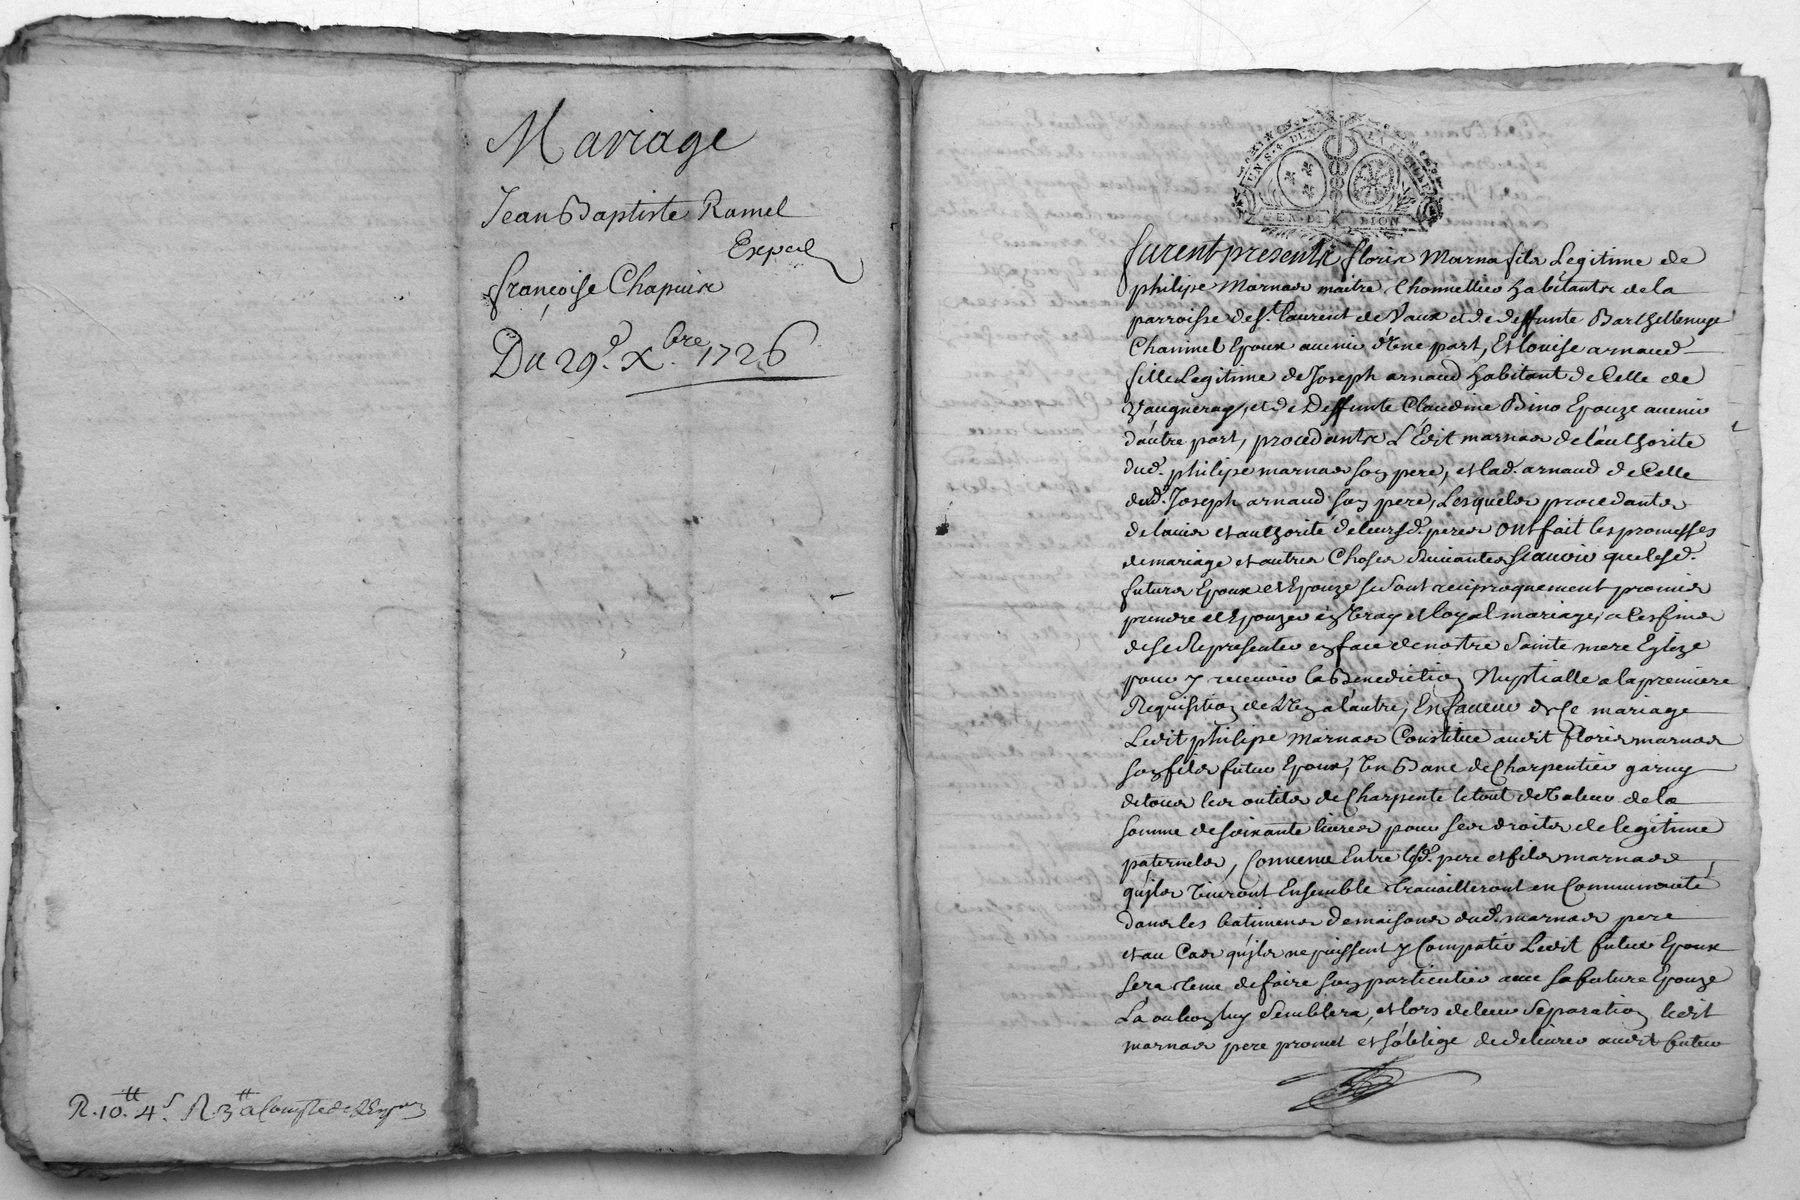 Mariage
Jean Baptiste Ramel
Exped
françoise Chapuis
Du 29e. Xbre. 1726
R. 10tt 4s. R. 3tt a Compte de
GEN LION
furent presents floris Marnas fils Legitime de
philipe Marnas maitre habitants de la
parroisse de St. laurent de Vaux et de deffunte Barthellemye
Chammel Epoux auenir d'Vne part, Et louise arnaud
fille Legitime de Joseph arnaud habitant de Celle de
Vaugneray, et de Deffunte Claudine Bino Epouze auenir
d'autre part, procedants L'Edit marnas de l'authorité
dud. philipe marnas son pere, et lad. arnaud de Celle
dud. Joseph arnaud son pere, Lesquels procedants
de lauis et authorité de leursd. peres ont fait les promesses
de mariage et autres Choses suiuantes scauoir que lesd.
futurs Epoux et Epouze se sont reciproquement promis
prendre et Epouzer en Vray et loyal mariage, a les fins
de se Representer en face de nostre Sainte mere Eglize
pour y receuoir la Benediction Nuptialle a la premiere
Requisition de L'Vn a l'autre, En faueur de Ce mariage
Ledit philipe Marnas Constitue audit floris marnas
son fils futur Epoux, Vn Banc de Charpentier garny
de tous les outils de Charpente le tout de Valeur de la
somme de soixante liures pour ses droits de legitime
paternels, Conuenu Entre lesd. pere et fils marnas,
qu'jls Viuront Ensemble trauailleront en Communauté
dans les batimens de maisons dud. marnas pere
et au Cas qu'jls ne puissent y Compatir Ledit futur Epoux
sera tenu de faire son particulier auec sa future Epouze
La ou bon luy Semblera, et lors de leur Separation ledit
marnas pere promet et s'oblige de deliurer audit futur